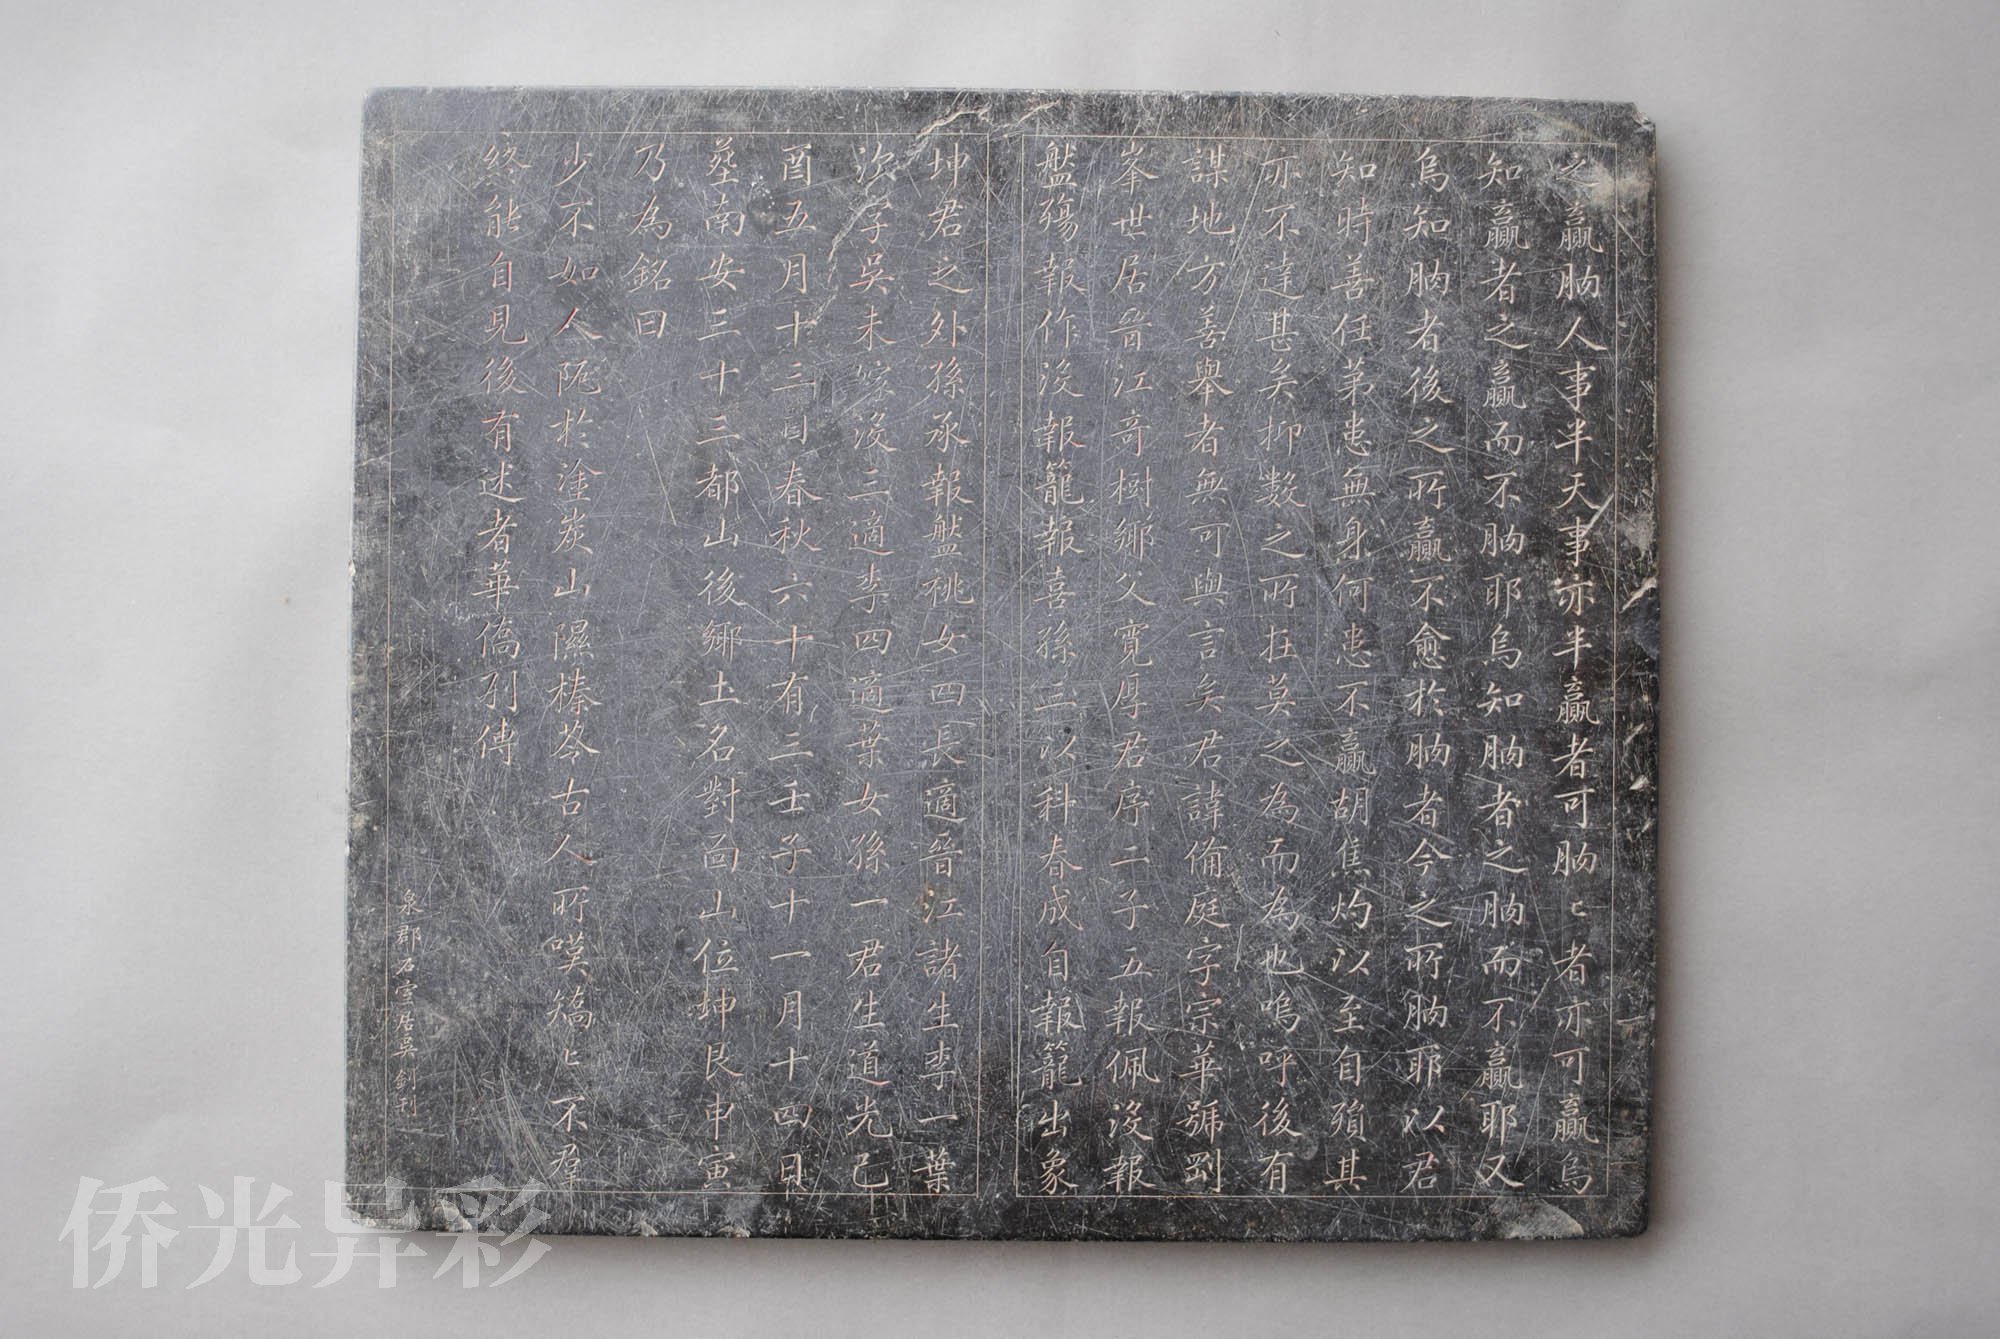 之贏朒人事半天事亦半贏者可朒〻者亦可贏烏
知贏者之贏而不朒耶烏知朒者之朒而不贏耶又
烏知朒者後之所贏不愈於朒者今之所朒耶以君
知時善任第患無身何患不贏胡焦灼以至自殞其
亦不達甚矣抑數之所在莫之為而為也嗚呼後有
謀地方善舉者無可與言矣君諱備庭字宗華號剛
峯世居晉江奇樹鄉父寬厚君序二子五報佩沒報
盤殤報作沒報籠報喜孫三以科春成自報籠出象
坤君之外孫承報盤祧女四長適晉江諸生李一葉
次字吳未嫁沒三適李四適葉女孫一君生道光己
酉五月十三日春秋六十有三壬子十一月十四日
塟南安三十三都山後鄉土名對面山位坤艮申寅
乃為銘曰
少不如人阨於塗炭山隰榛苓古人所嘆矯〻不羣
終能自見後有述者華僑列傳
泉郡石室居吳釗刊
侨光异彩